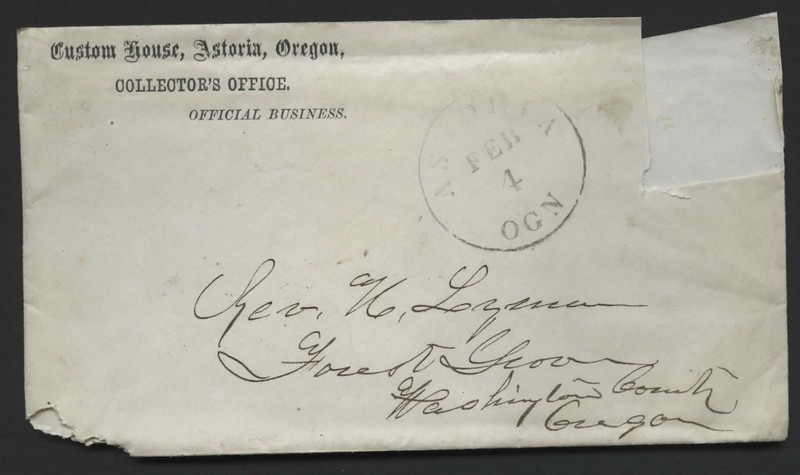 Custom House, Astoria, Oregon,
COLLECTOR'S OFFICE.
OFFICIAL BUSINESS.
ASTORIA
FEB
4
OGN
Rev. H. Lyman
Forest Grove
Washington County
Oregon